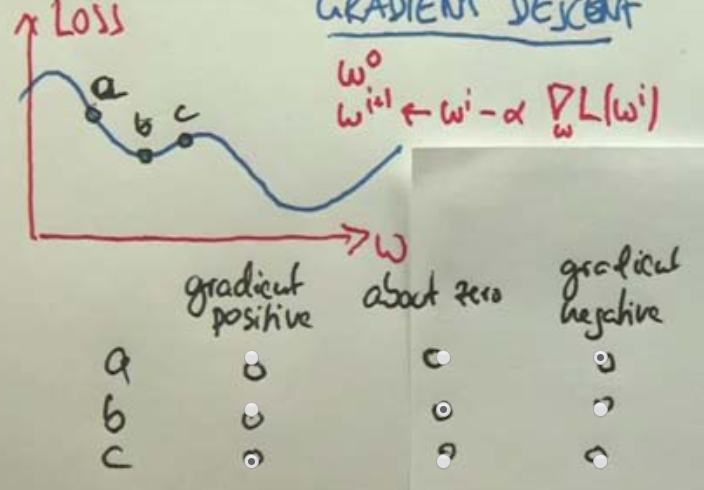 LOSS
GRADIENT DESCENT
a
b
c
w⁰
wⁱ⁺¹ ← wⁱ - α ∇w L(wⁱ)
w
gradient positive
about zero
gradient negative
a
b
c